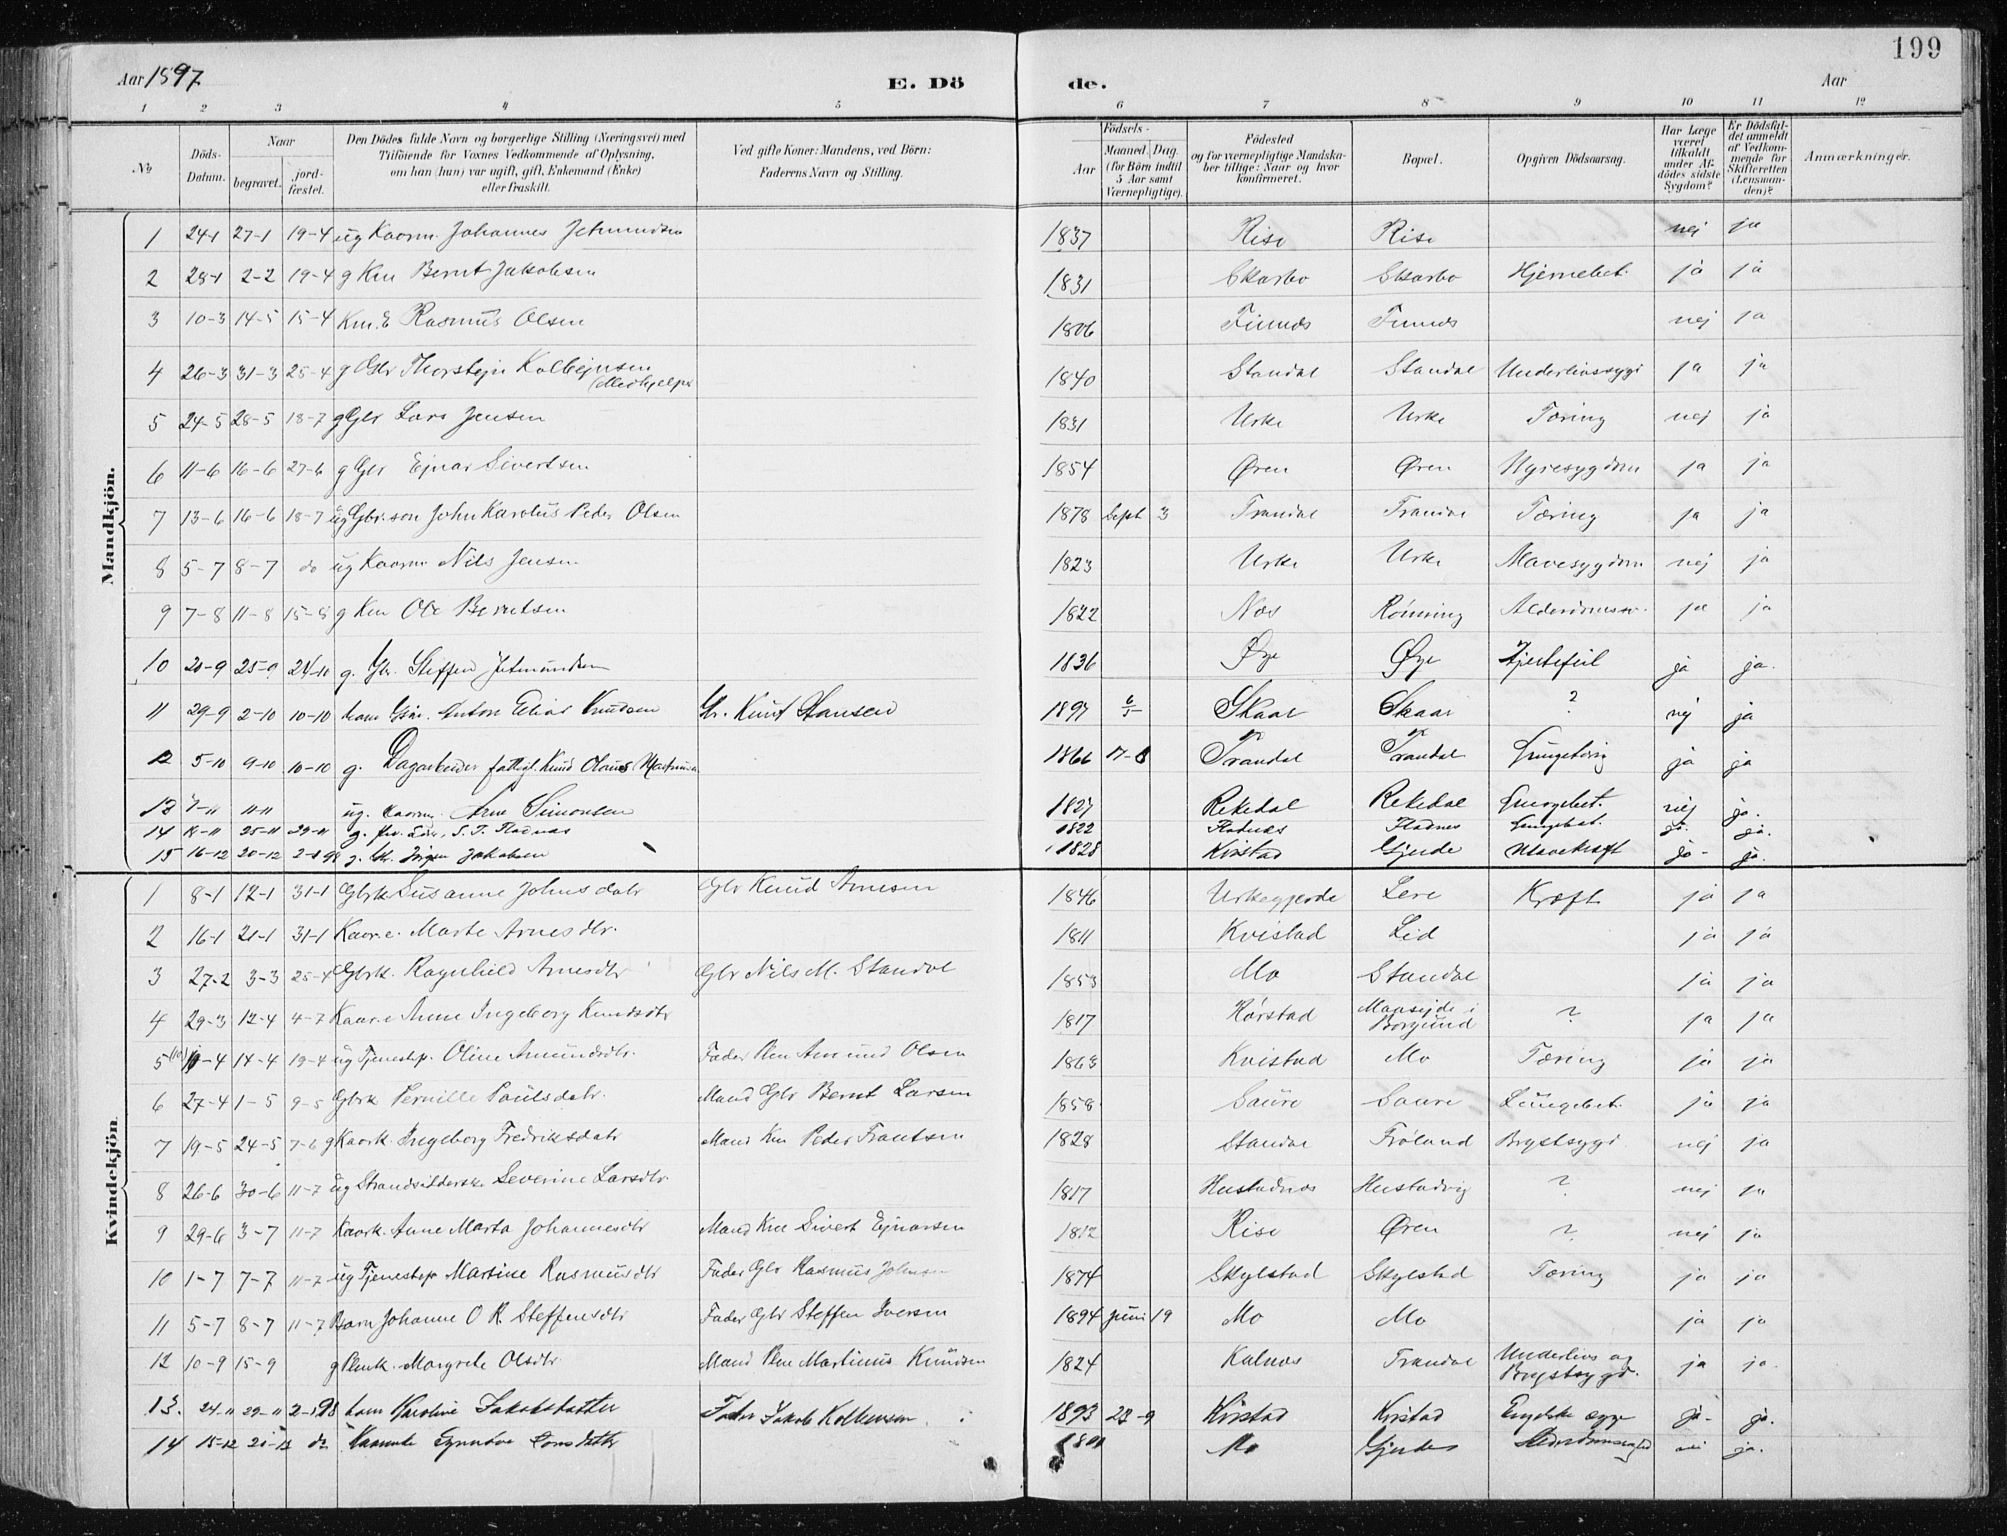 199
Aar 1897. E. Dö de. Aar
1 2 3 4 5 6 7 8 9 10 11 12
No
Döds-Datum.
Naar
begravet.
jord-fæstet.
Den Dödes fulde Navn og borgerlige Stilling (Næringsvei) med
Tilföiende for Voxnes Vedkommende af Oplysning,
om han (hun) var ugift, gift, Enkemand (Enke)
eller fraskilt.
Ved gifte Koner: Mandens, ved Börn:
Faderens Navn og Stilling.
Födsels-
Aar
Maaned. Dag.
(for Börn indtil
5 Aar samt
Værnepligtige).
Födested
og for værnepligtige Mandska-
ber tillige: Naar og hvor
konfirmeret.
Bopæl.
Opgiven Dödsaarsag.
Har Læge
været
tilkaldt
under Af-
dödes sidste
Sygdom?
Er Dödsfal-
det anmeldt
af Vedkom-
mende for
Skifteretten
(Lensman-
den)?
Anmærkninger.
Mandkjön.
1 24-1 27-1 19-4 ug Kaarm. Johannes Jetmundsen 1837 Rise Rise nej ja
2 28-1 2-2 19-4 g Km Bernt Jakobsen 1831 Skarbo Skarbo Hjernebet. ja ja
3 10-3 14-5 15-4 Km. E Rasmus Olsen 1806 nej ja
4 26-3 31-3 25-4 g Gbr Thorstejn Kolbejnsen
(Medhjelper 1840 Standal Standal Underlivssyge ja ja
5 24-5 28-5 18-7 g Gbr Lars Jensen 1831 Urke Urke Tæring nej ja
6 11-6 16-6 27-6 g Gbr Ejnar Sivertsen 1854 Øren Øren Nyresygdom ja ja
7 13-6 16-6 18-7 ug Gbr.son John Karolus Peder Olsen 1878 Sept 3 Trandal Trandal Tæring ja ja
8 5-7 8-7 do ug Kaarm Nils Jensen 1823 Urke Urke Mavesygdom nej ja
9 7-8 11-8 15-8 g Km Ole Berntsen 1822 Næs Rönning ja ja
10 20-9 25-9 24-10 g. Gbr. Steffen Jetmundsen 1836 Øye Øye Hjertefeil ja ja.
11 29-9 2-10 10-10 Anton Elias Knudsen Gbr. Knut Hansen 1897 6/5 Skaar Skaar ? nej ja
12 5-10 9-10 10-10 g. Dagarbeider fattigl. Knud Olaus 1866 17-8 Trandal Trandal Lungetæring ja ja
13 7-11 11-11 ug. Kaarm. Arne Simonsen 1827 Rekedal Rekedal Lungebet. nej ja.
14 19-11 25-11 29-11 g. 1822 Fladnes Fladnes Lungebet. ja. ja.
15 16-12 20-12 2-1 98 g. Jörgen Jakobsen 1828 Kvistad Gjerde Mavekræft ja - ja.
Kvindekjön.
1 8-1 12-1 31-1 Gbrk Susanne Johnsdatr Gbr Knud Arnesen 1846 Urkegjerde Lere Kræft ja ja
2 16-1 21-1 31-1 Kaar.e. Marte Arnesdtr. 1811 Kvistad Lid ja ja
3 27-2 3-3 25-4 Gbrk. Ragnhild Arnesdtr Gbr Nils M. Standal 1853 Mo Standal ja ja
4 29-3 12-4 4-7 Kaar.e Anne Ingeborg Knudsdtr 1817 Hörstad Maasejde i
Borgund ? ja ja
5 14-4 19-4 ug Tjenestep. Oline Amundsdtr. Fader Plm Amund Olsen 1863 Kvistad Mo Tæring ja ja
6 27-4 1-5 9-5 Gbrk Pernille Paulsdatr. Mand Gbr Bernt Larsen 1858 Saure Saure Lungebet. ja ja
7 19-5 24-5 7-6 g Kaark. Ingeborg Fredriksdatr Mand Km Peder Frantsen 1828 Standal Fröland Brystsyge nej ja
8 26-6 30-6 11-7 ug Strandsidderske Severine Larsdtr 1817 Hustadnæs Hustadvig ? nej ja
9 29-6 3-7 11-7 Kaark. Anne Marta Johannesdtr Mand Km Sivert Ejnarsen 1812 Rise Øren ? nej ja
10 1-7 7-7 11-7 ug Tjenestep Martine Rasmusdtr Fader Gbr Rasmus Johnsen 1874 Skylstad Skylstad Tæring ja ja
11 5-7 8-7 11-7 Barn Johanne O R. Steffensdtr Fader Gbr Steffen Iversen 1894 Juni 19 Mo Mo ja ja
12 10-9 15-9 g Plmk. Margrete Olsdtr Mand Plm Martinus Knudsen 1824 Kalnæs Trandal Underlivs og
Brystsygd. ja ja.
13. 24-11 29-11 2-1 98 barn Karoline Jakobsdatter Fader Jakob Kolbensen 1893 23-9 Kvistad Kvistad Engelske syge ja - ja.
14 15-12 20-12 do 1801 Mo Gjerde nei ja.